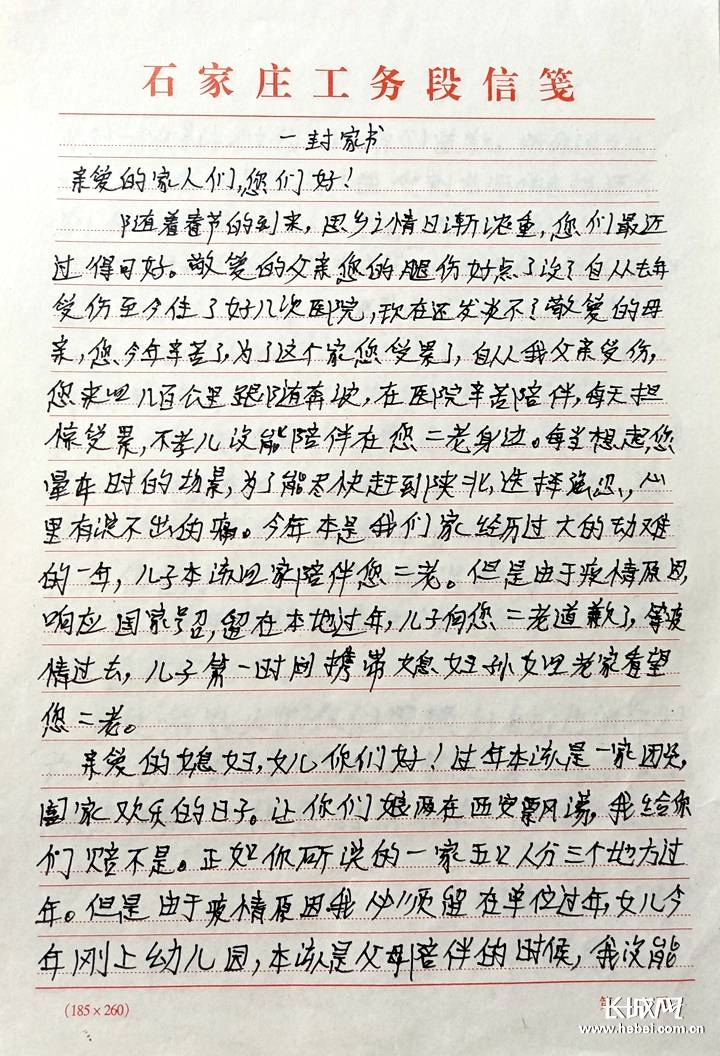 石家庄工务段信笺
一封家书
亲爱的家人们,您们好!
随着春节的到来,思乡之情日渐浓重,您们最近
过得可好。敬爱的父亲,您的腿伤好点了没?自从去年
受伤至今住了好几次医院,现在还发炎不?敬爱的母
亲,您今年辛苦了,为了这个家您受累了,自从我父亲受伤,
您来回几百公里跟随奔波,在医院辛苦陪伴,每天担
惊受累,不孝儿没能陪伴在您二老身边。每当想起,您
晕车时的场景,为了能尽快赶到陕北,选择强忍,心
里有说不出的痛。今年本是我们家经历过大的劫难
的一年,儿子本该回家陪伴您二老。但是由于疫情原因,
响应国家号召,留在本地过年,儿子向您二老道歉了,等疫
情过去,儿子第一时间携带媳妇孙女回老家看望
您二老。
亲爱的媳妇,女儿你们好!过年本该是一家团免,
阖家欢乐的日子。让你们娘两在西安飘荡,我给你
们赔不是。正如你所说的一家五口人分三个地方过
年。但是由于疫情原因我必须留在单位过年,女儿今
年刚上幼儿园,本该是父母陪伴的时候,我没能
(185×260)
长城网
www.hebei.com.cn